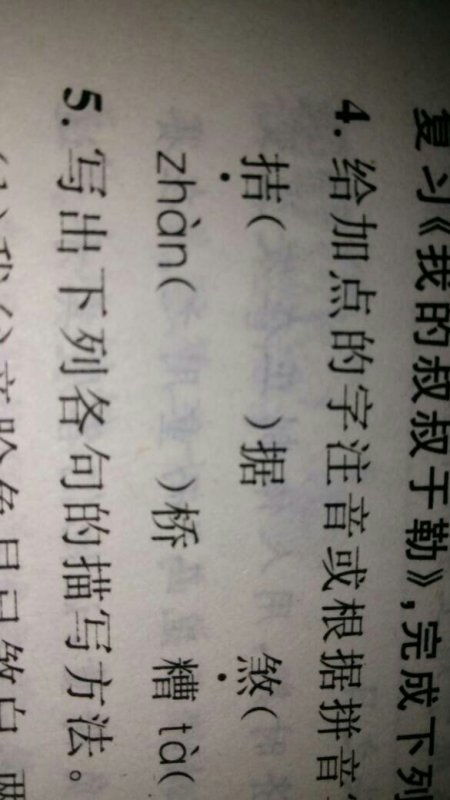 复习《我的叔叔于勒》，完成下列
4. 给加点的字注音或根据拼音
拮( )据 煞(
zhàn( )桥 糟tà(
5. 写出下列各句的描写方法。